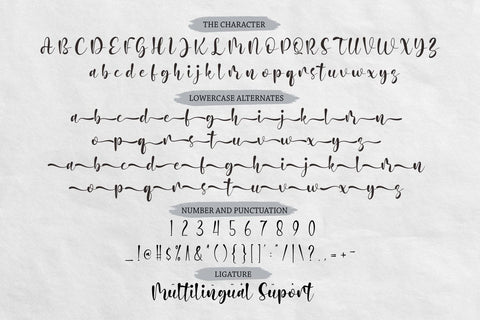 THE CHARACTER
ABCDEFGHIJKLMNOPQRSTUVWXYZ
abcdefghijklmnopqrstuvwxyz
LOWERCASE ALTERNATES
a b c d e f g h i j k l m n
o p q r s t u v w x y z
a b c d e f g h i j k l m n
o p q r s t u v w x y z
NUMBER AND PUNCTUATION
1 2 3 4 5 6 7 8 9 0
_!@#$%&*(){}[]:;"/|\?.,=+-
LIGATURE
Multilingual Suport